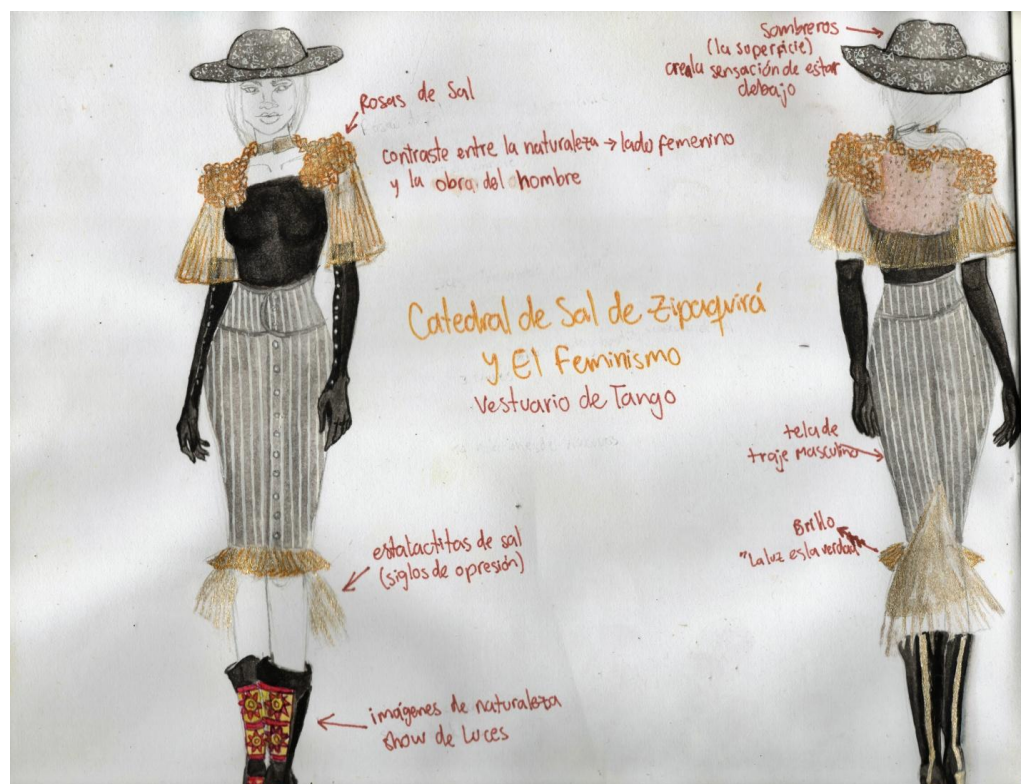 Rosas de Sal
contraste entre la naturaleza → lado femenino
y la obra del hombre
Sombreros
(la superficie)
crea la sensación de estar
debajo
Catedral de Sal de Zipaquirá
y El Feminismo
Vestuario de Tango
tela de
traje masculino
estalactitas de sal
(siglos de opresión)
Brillo
"La luz es la verdad"
imágenes de naturaleza
show de luces